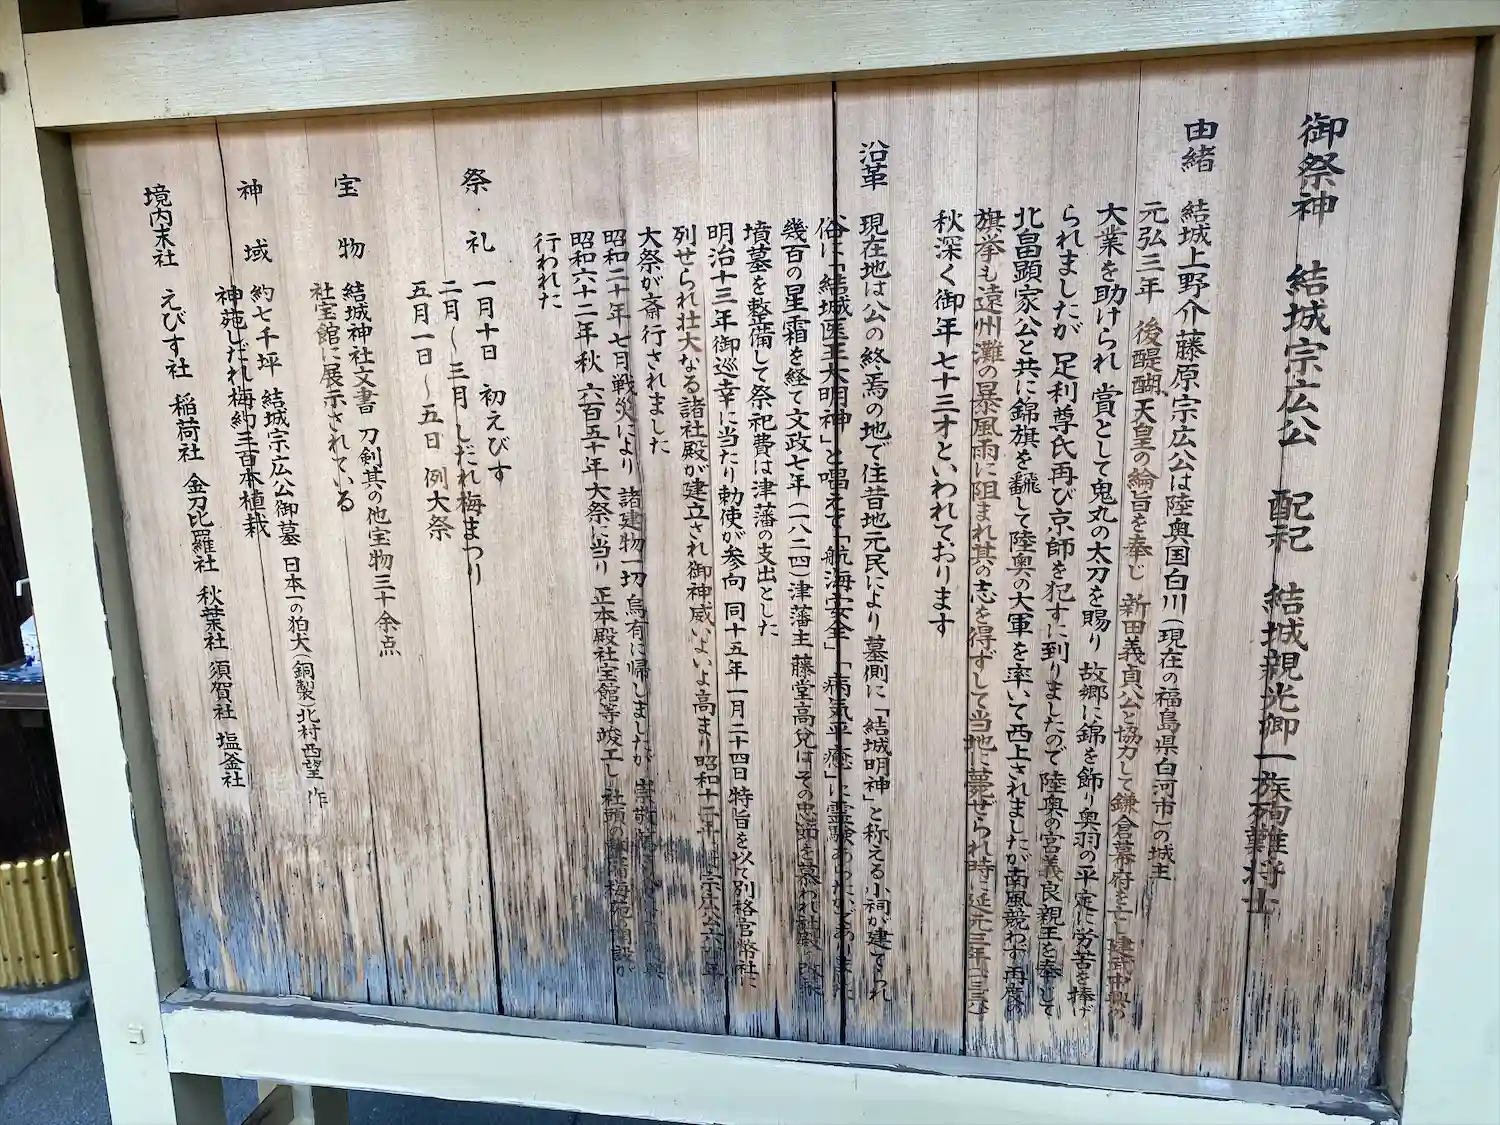 御祭神　結城宗広公　配祀　結城親光卿一族殉難将士
由緒　結城上野介藤原宗広公は陸奥国白川（現在の福島県白河市）の城主
元弘三年　後醍醐天皇の綸旨を奉じ　新田義貞公と協力して鎌倉幕府を亡し建武中興の
大業を助けられ　賞として鬼丸の太刀を賜り　故郷に錦を飾り奥羽の平定に労苦を捧げ
られましたが　足利尊氏再び京師を犯すに到りましたので　陸奥の宮義良親王を奉じて
北畠顕家公と共に錦旗を飜して陸奥の大軍を率いて西上されましたが南風競わず　再度の
旗挙も遠州灘の暴風雨に阻まれ其の志を得ずして当地に薨ぜられ時に延元三年
秋深く御年七十三才といわれております
沿革　現在地は公の終焉の地で住昔地元民により　墓側に「結城明神」と称える小祠が建てられ
俗に「結城医王大明神」と唱えて「航海安全」「病気平癒」に霊験あらたかであ
幾百の星霜を経て文政七年（一八二四）津藩主　藤堂高兌はその忠節を慕われ社殿
墳墓を整備して祭祀費は津藩の支出とした
明治十三年御巡幸に当たり勅使が参向　同十五年一月二十四日　特旨を以て別格官幣社に
列せられ壮大なる諸社殿が建立され御神威いよいよ高まり昭和十二年　宗広公六百年
大祭が斎行されました
昭和二十年七月戦災により　諸建物一切　烏有に帰しましたが　崇敬
昭和六十二年秋　六百五十年大祭に当り　正本殿社宝館等竣工し　社頭の　梅苑の開設が
行われた
祭礼　一月十日　初えびす
二月～三月　しだれ梅まつり
五月一日～五日　例大祭
宝物　結城神社文書　刀剣其の他宝物三十余点
社宝館に展示されている
神域　約七千坪　結城宗広公御墓　日本一の狛犬（銅製）北村西望　作
神苑しだれ梅約三百本植栽
境内末社　えびす社　稲荷社　金刀比羅社　秋葉社　須賀社　塩釜社